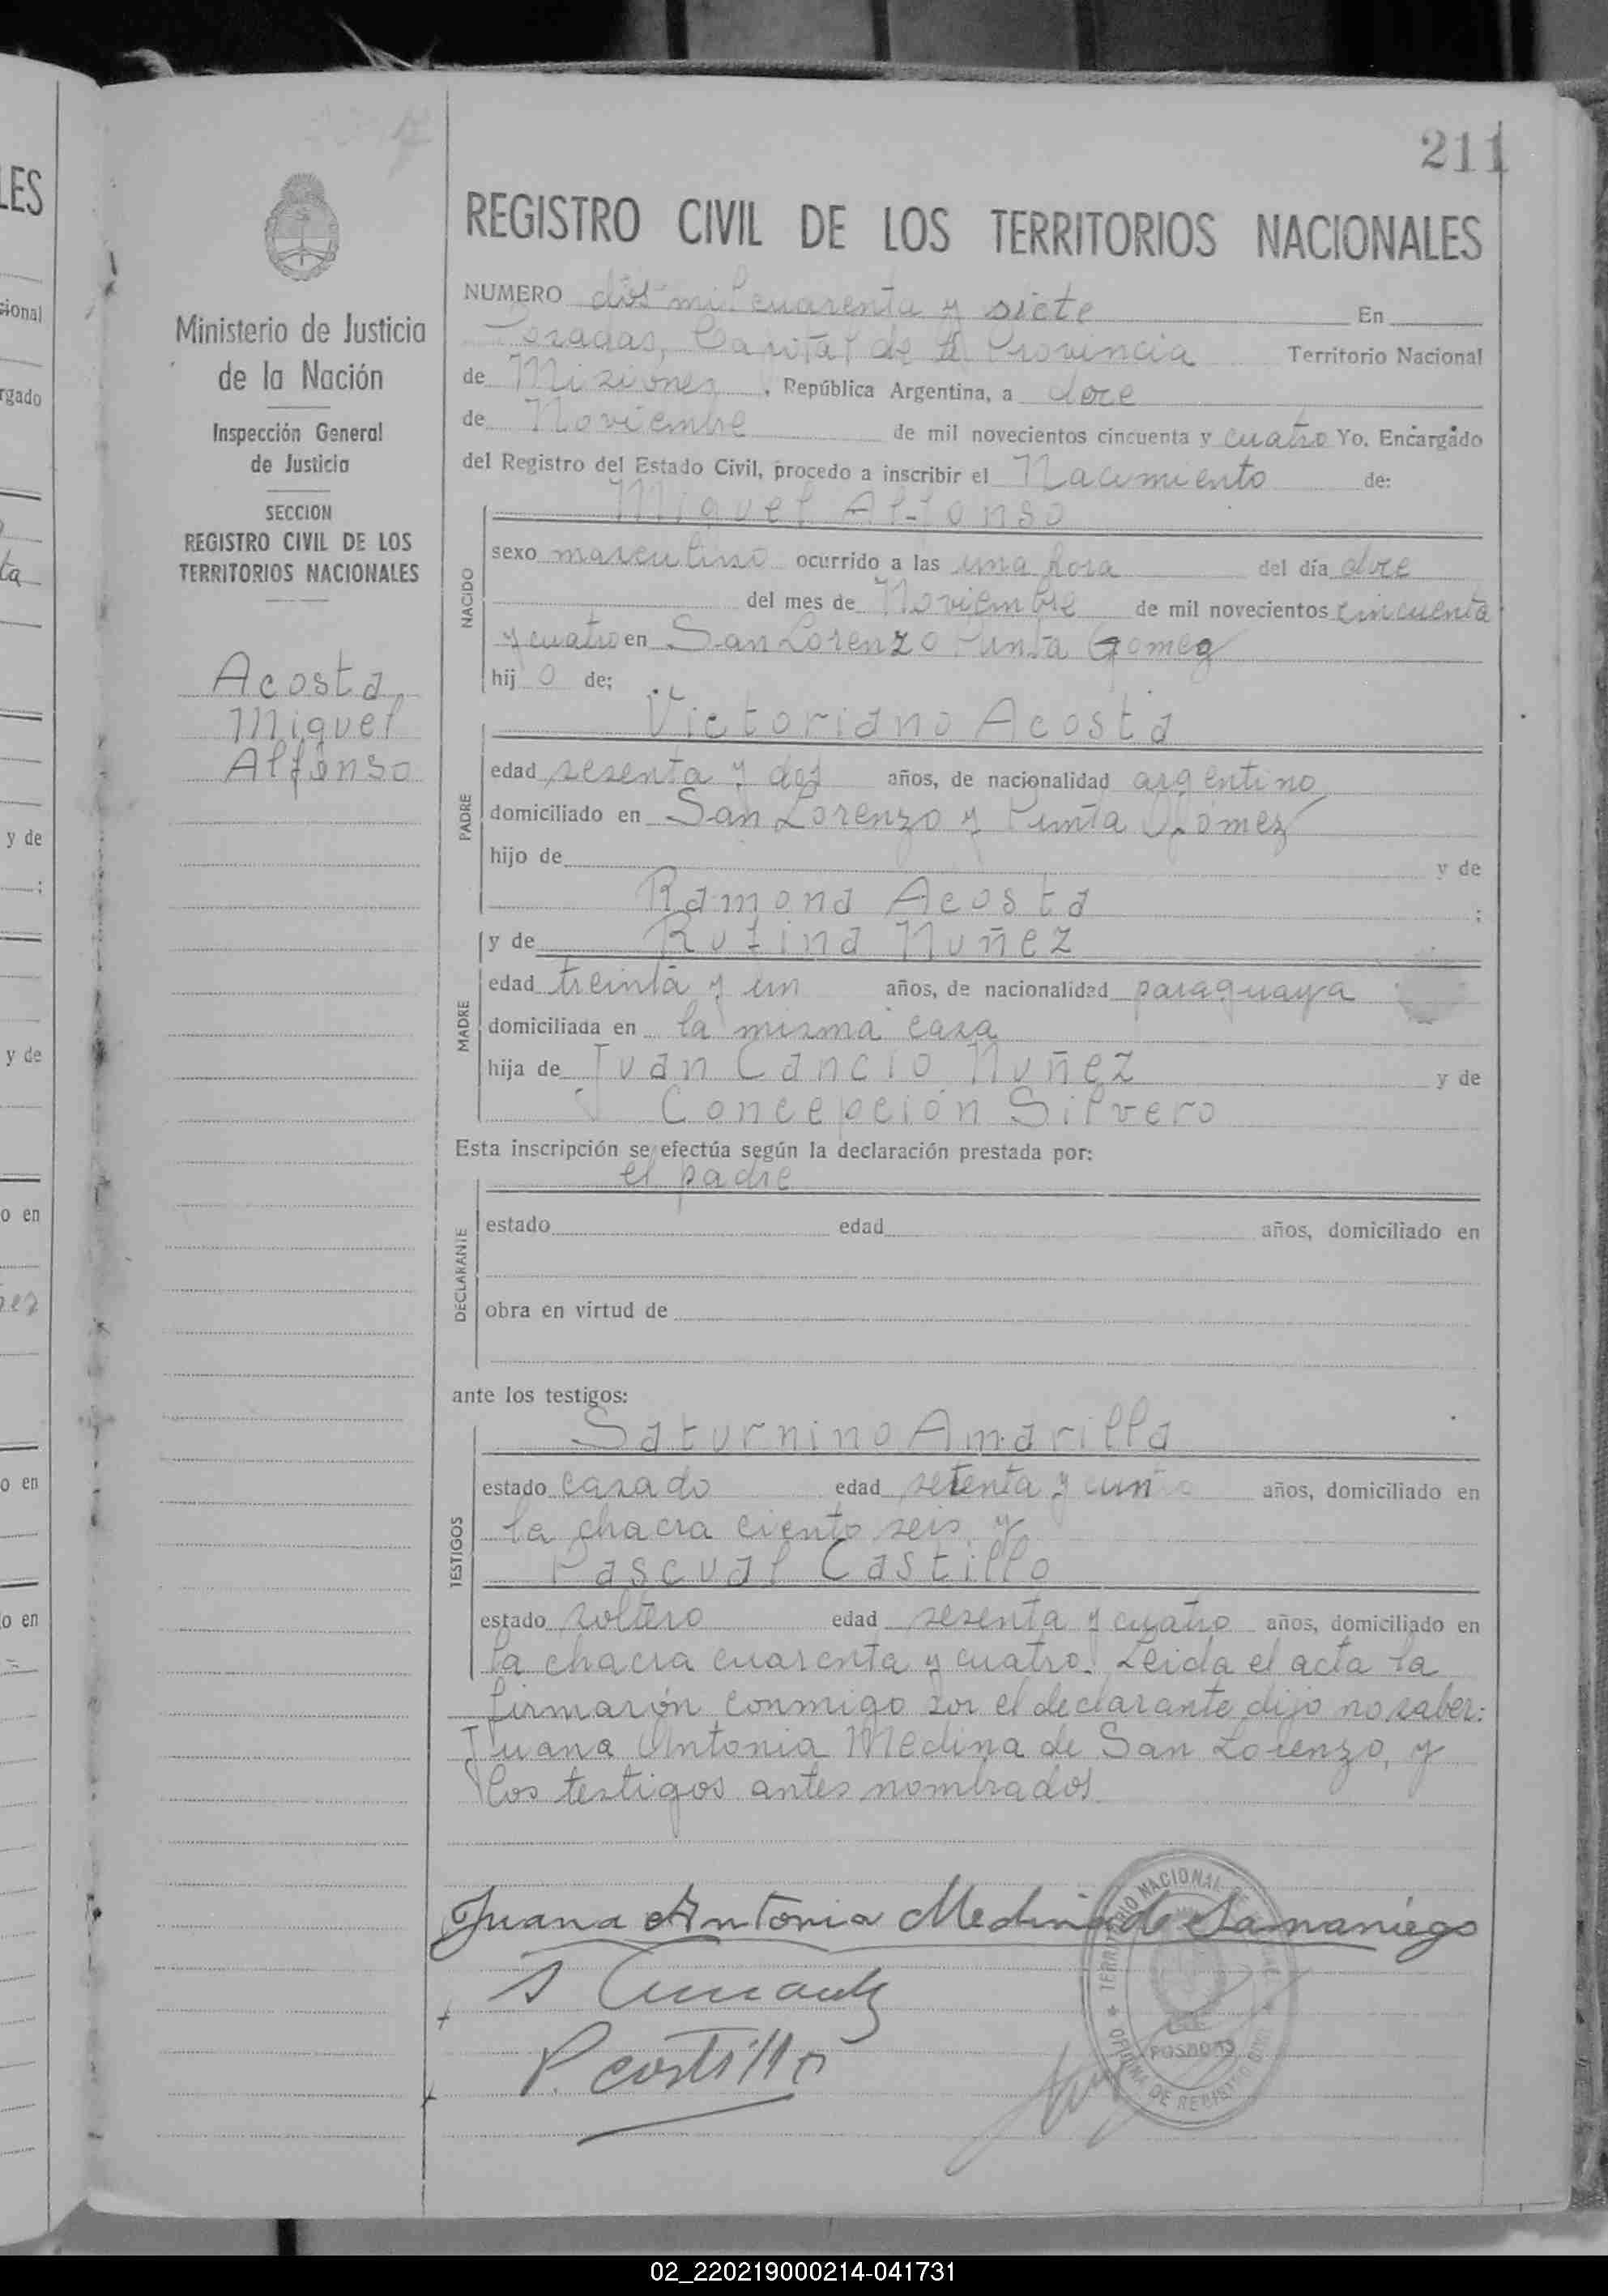 211
REGISTRO CIVIL DE LOS TERRITORIOS NACIONALES
Ministerio de Justicia
de la Nación
Inspección General
de Justicia
SECCION
REGISTRO CIVIL DE LOS
TERRITORIOS NACIONALES
Acosta,
Miguel
Alfonso
NUMERO dos mil cuarenta y siete En
Posadas, Capital de la Provincia Territorio Nacional
de Misiones, República Argentina, a doce
de Noviembre de mil novecientos cincuenta y cuatro Yo, Encargado
del Registro del Estado Civil, procedo a inscribir el Nacimiento de:
Miguel Alfonso
NACIDO
sexo masculino ocurrido a las una hora del día doce
del mes de Noviembre de mil novecientos cincuenta
y cuatro en San Lorenzo Punta Gomez
hijo de;
Victoriano Acosta
PADRE
edad sesenta y dos años, de nacionalidad argentino
domiciliado en San Lorenzo y Punta Gomez
hijo de y de
Ramona Acosta ;
y de Rufina Nuñez
MADRE
edad treinta y un años, de nacionalidad paraguaya
domiciliada en la misma casa
hija de Juan Cancio Nuñez y de
Concepción Silvero
Esta inscripción se efectúa según la declaración prestada por:
el padre
DECLARANTE
estado edad años, domiciliado en
obra en virtud de
ante los testigos:
Saturnino Amarilla
TESTIGOS
estado casado edad setenta y años, domiciliado en
la chacra ciento seis y
Pascual Castillo
estado soltero edad sesenta y cuatro años, domiciliado en
la chacra cuarenta y cuatro. Leida el acta la
firmarón conmigo por el declarante dijo no saber:
Juana Antonia Medina de San Lorenzo, y
los testigos antes nombrados
Juana Antonia Medina de Samaniego
P. Castillo
TERRITORIO NACIONAL DE
POSADAS
OFICINA DE REGISTRO CIVIL
02_220219000214-041731